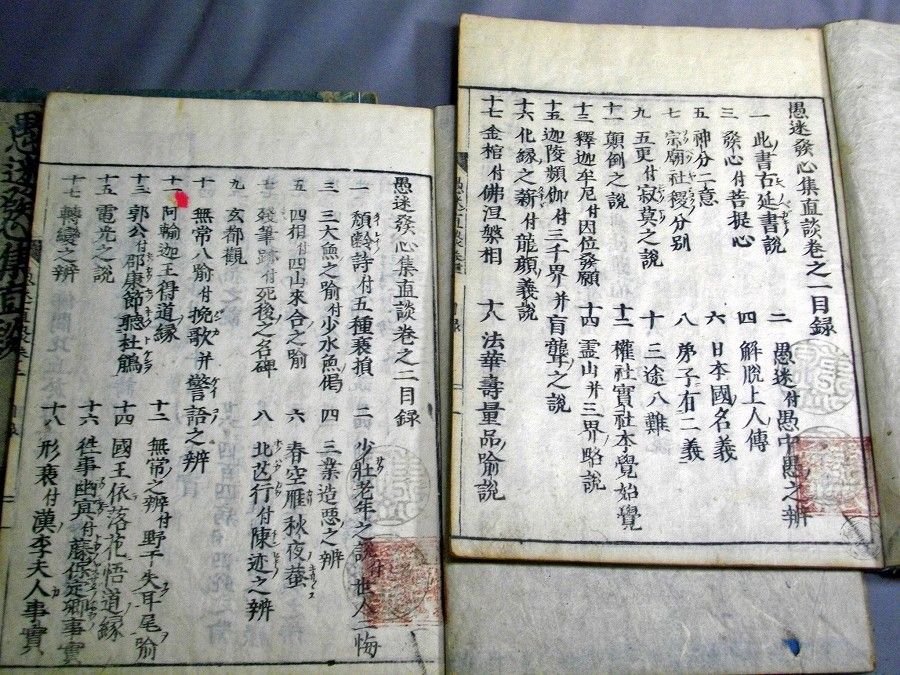 愚迷發心集直談巻之一目録
一 此書右延書説 二 愚迷付愚中愚之辨
三 發心付菩提心 四 解脱上人傳
五 神分二意 六 日本國名義
七 宗廟社稷分别 八 弟子有二義
九 五更付寂莫之説 十 三途八難
十一 顛倒之説 十二 權社實社本覺始覺
十三 釋迦牟尼付因位發願 十四 霊山并三界略説
十五 迦陵頻伽付三千界并盲聾之説
十六 化縁之薪付龍顔義説
十七 金棺付佛涅槃相 十八 法華壽量品喻説
愚迷發心集直談巻之二目録
一 頽齡詩付五種衰損 二 少壯老年之説
三 三大魚之喻付少水魚偈 四 三業造惡之辨
五 四相付四山來合之喻 六 春空雁秋夜蛍
七 發筆跡付死後之名碑 八 北芒行付陳迹之辨
九 玄都觀
十 無常八喻付挽歌并警語之辨
十一 阿輸迦王得道縁 十二 無常之辨付野干失耳尾喻
十三 郭公付邵康節聽杜鵑 十四 國王依落花悟道縁
十五 電光之説 十六 徃事幽冥付藤保定卿事實
十七 轉變之辨 十八 形衰付漢李夫人事實
愚迷發心集直談